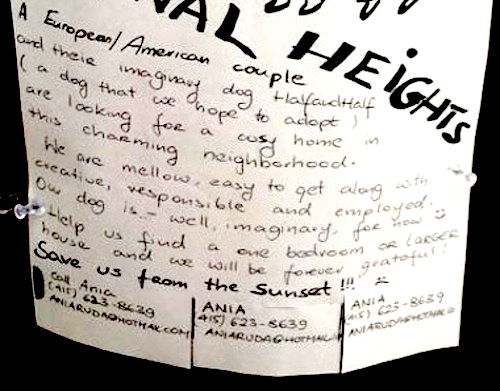 NAL HEIGHTS
A European/American couple
and their imaginary dog HalfandHalf
( a dog that we hope to adopt )
are looking for a cosy home in
this charming neighborhood.
We are mellow, easy to get along with.
creative, responsible and employed.
Our dog is - well, imaginary, for now ☺
Help us find a one bedroom OR LARGER
house and we will be forever grateful!
Save us from the Sunset!!!
Call Ania
(415) 623-8639
ANIARUDA@HOTMAIL.COM
ANIA
415) 623-8639
ANIARUDA@HOTMAIL
ANIA
415) 623-8639
ANIARUDA@HOTMAIL